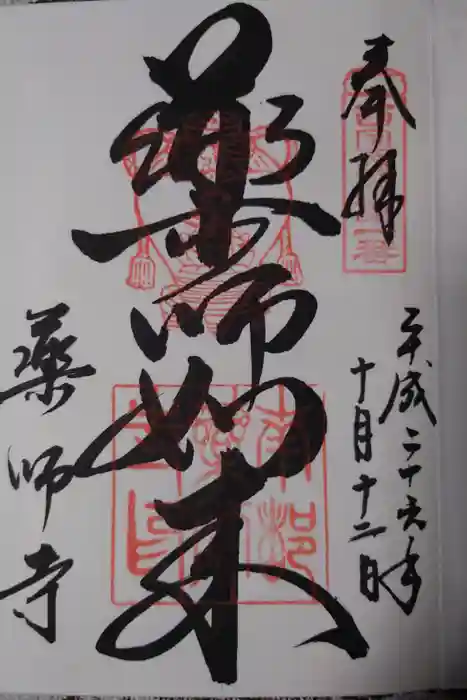 奉拝
平成二十六年
十月十二日
薬師如来
薬師寺